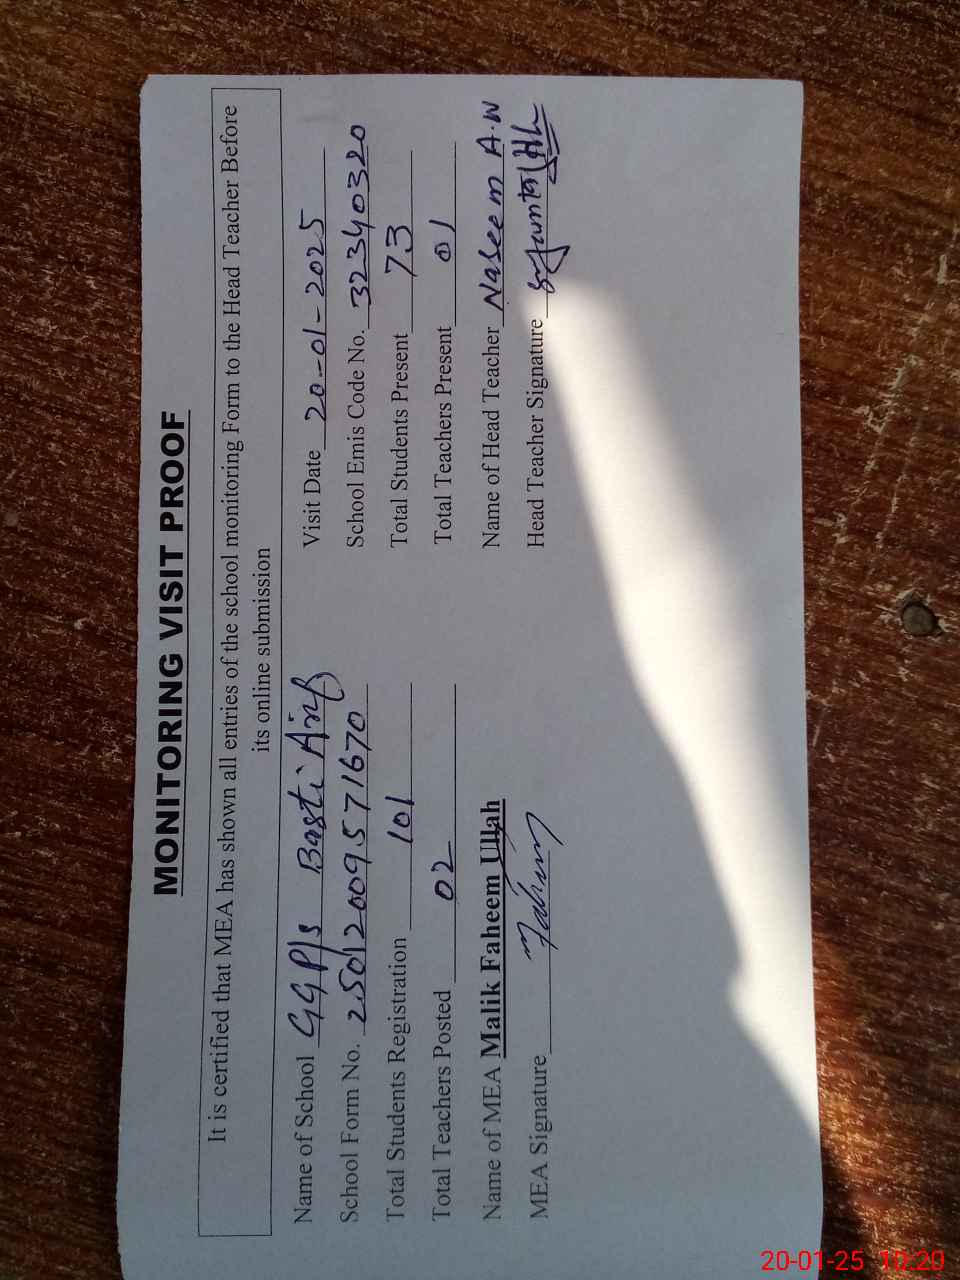 MONITORING VISIT PROOF
It is certified that MEA has shown all entries of the school monitoring Form to the Head Teacher Before
its online submission
Name of School GGP/s Basti Arif Visit Date 20-01-2025
School Form No. 25012009571670 School Emis Code No. 32340320
Total Students Registration 101 Total Students Present 73
Total Teachers Posted 02 Total Teachers Present 01
Name of MEA Malik Faheem Ullah Name of Head Teacher Naseem A.W
MEA Signature Head Teacher Signature
20-01-25 10:20